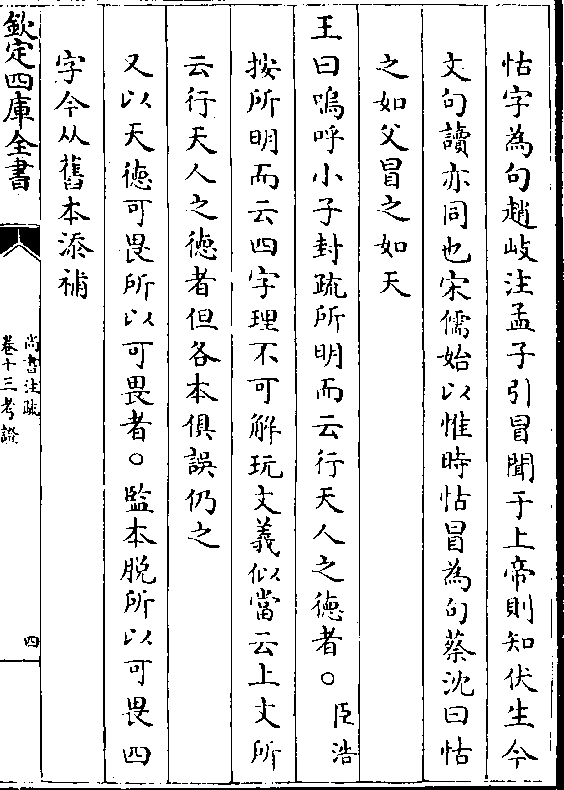 怙字為句趙岐注孟子引冒聞于上帝則知伏生今
文句讀亦同也宋儒始以惟時怙冒為句蔡沈曰怙
之如父冒之如天
王曰嗚呼小子封疏所明而云行天人之德者○臣浩
按所明而云四字理不可解玩文義似當云上文所
云行天人之德者但各本俱誤仍之
又以天德可畏所以可畏者○監本脫所以可畏四
字今从舊本添補
欽定四庫全書
尚書注疏
卷十三考證
四